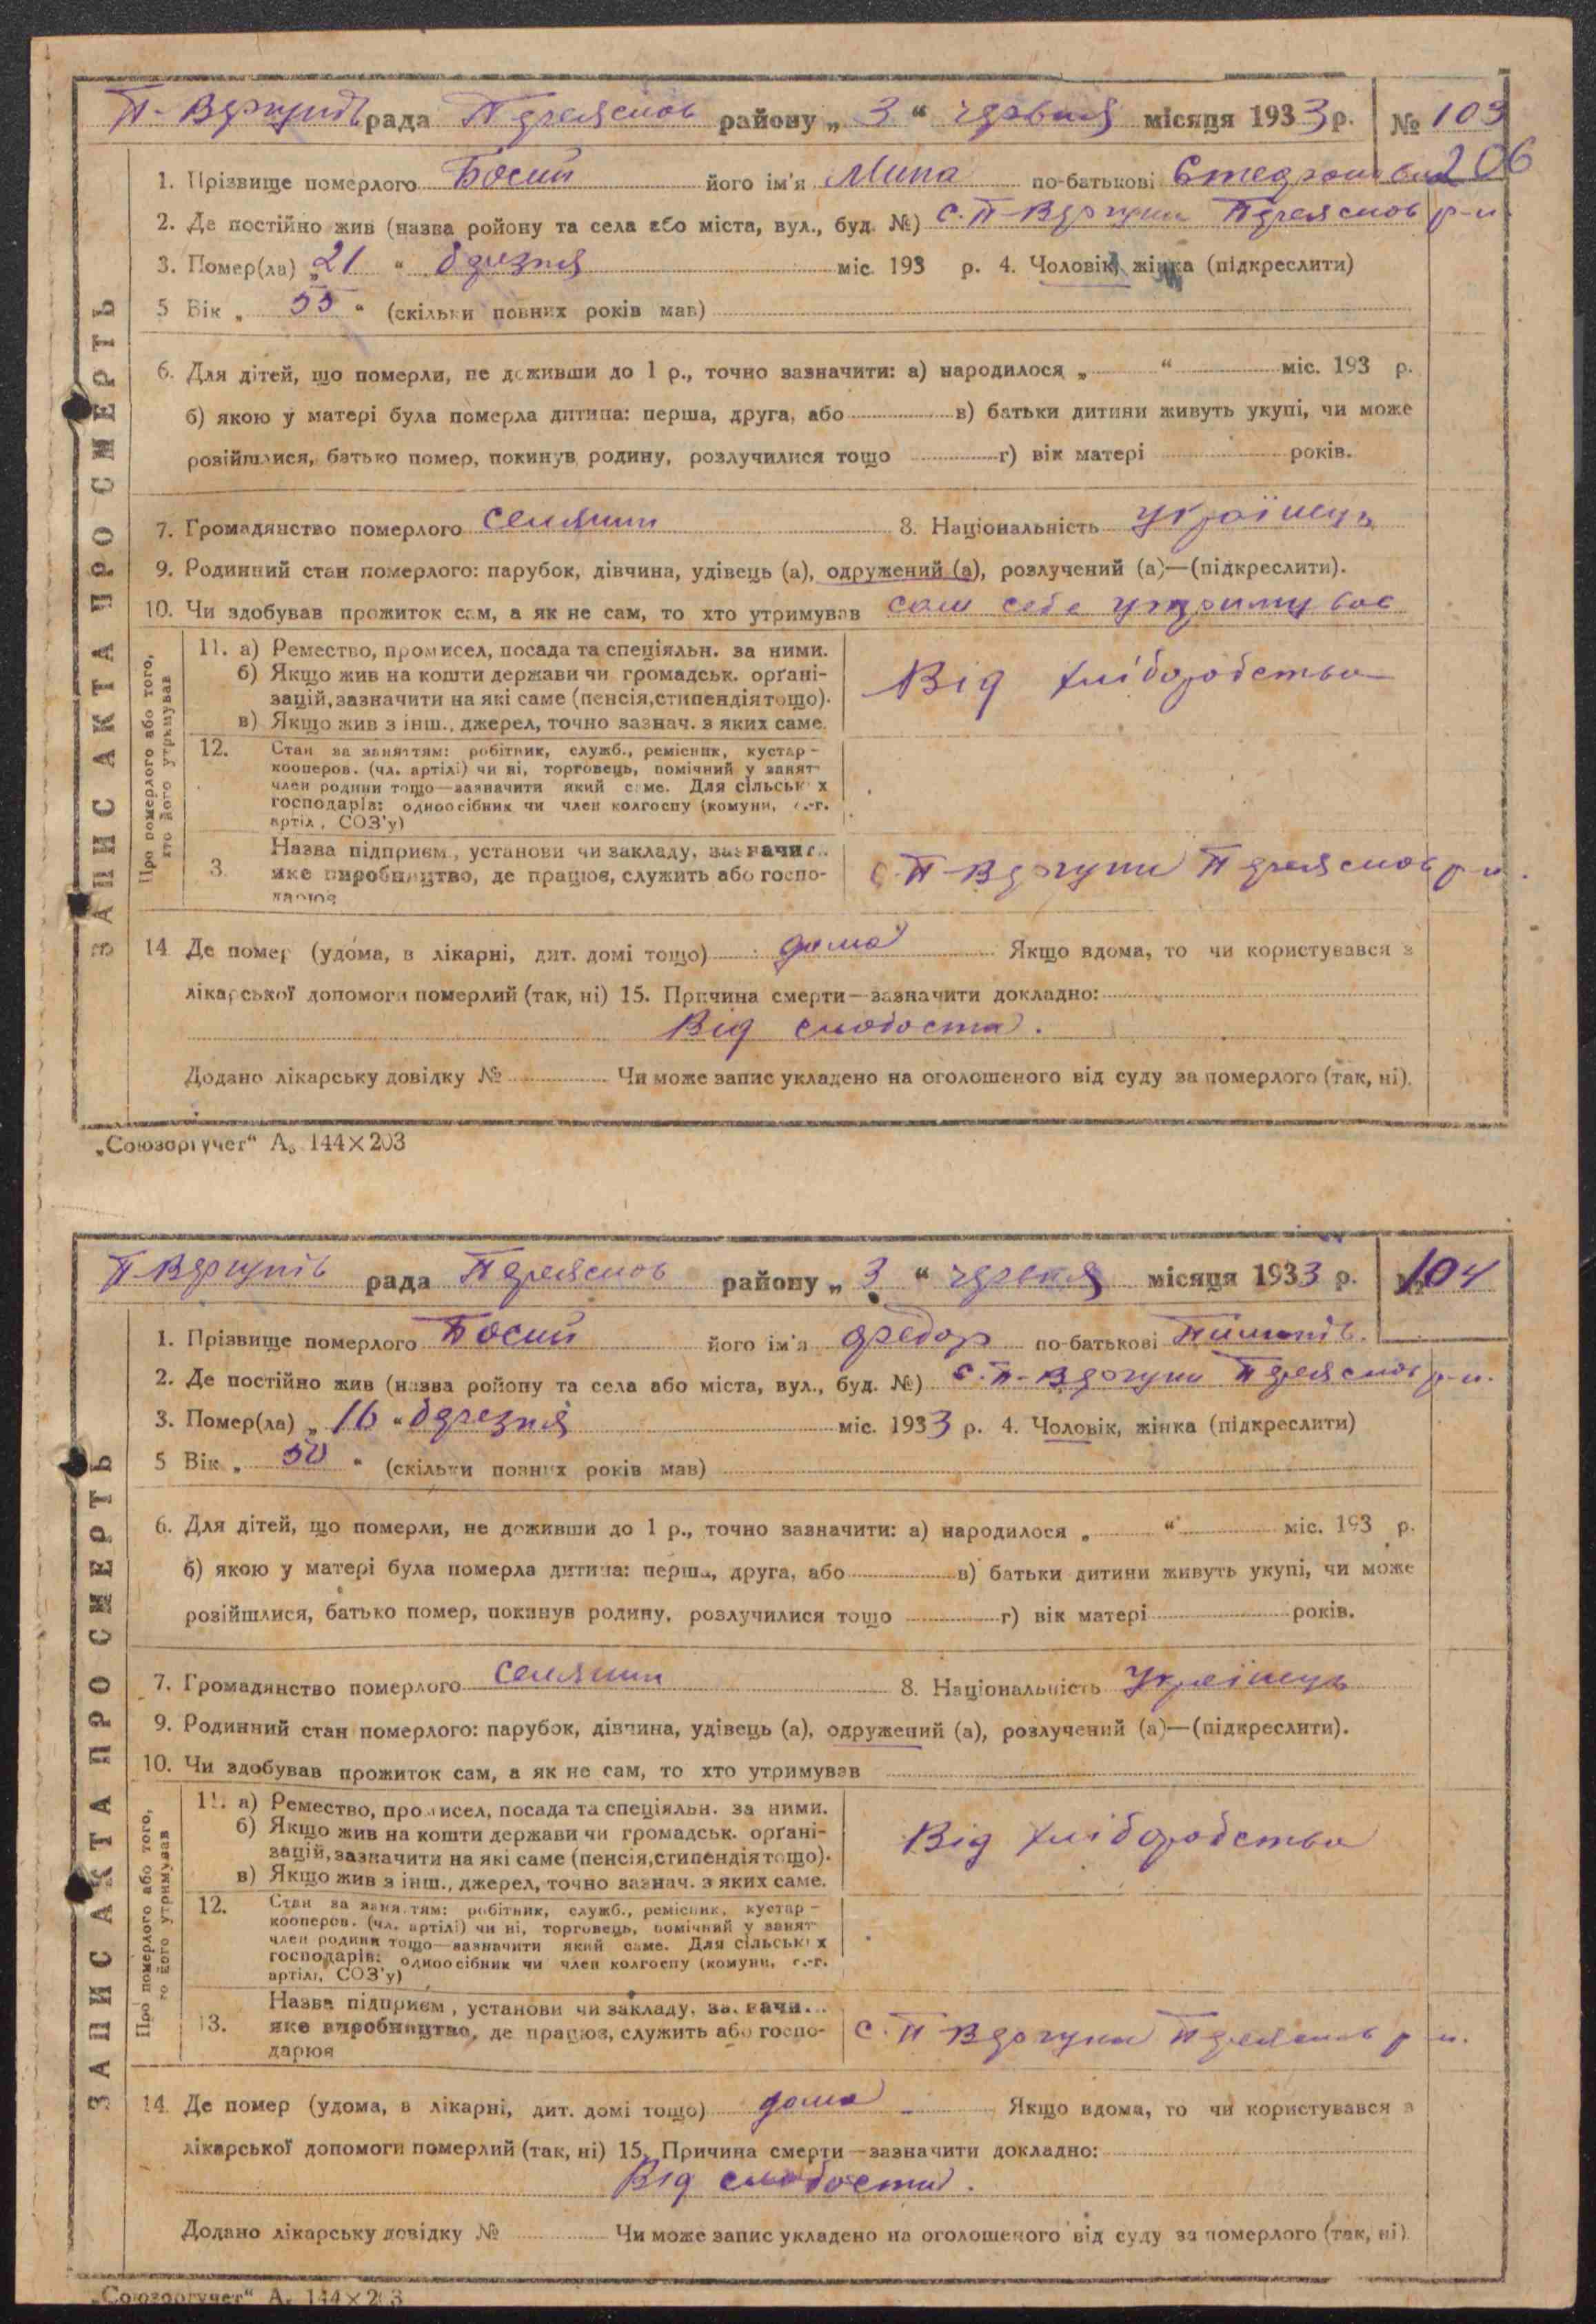 П-Вергунів рада Переяслов району „ 3 “ червня місяця 1933 р. № 103
206
1. Прізвище померлого Босий його ім'я Мина по-батькові
2. Де постійно жив (назва ройону та села або міста, вул., буд. №) с. П-Вергуни Переяслов р-н.
3. Помер(ла) „ 21 “ березня міс. 193 р. 4. Чоловік, жінка (підкреслити)
5 Вік „ 55 “ (скільки повних років мав)
6. Для дітей, що померли, не доживши до 1 р., точно зазначити: а) народилося „ “ міс. 193 р.
б) якою у матері була померла дитина: перша, друга, або в) батьки дитини живуть укупі, чи може
розійшлися, батько помер, покинув родину, розлучилися тощо г) вік матері років.
7. Громадянство померлого селянин 8. Національність українець
9. Родинний стан померлого: парубок, дівчина, удівець (а), одружений (а), розлучений (а)—(підкреслити).
10. Чи здобував прожиток сам, а як не сам, то хто утримував сам себе утримував
11. а) Ремество, промисел, посада та спеціяльн. за ними.
б) Якщо жив на кошти держави чи громадськ. орґані-
зацій, зазначити на які саме (пенсія, стипендія тощо).
в) Якщо жив з інш., джерел, точно зазнач. з яких саме.
Від хліборобства
12. Стан за заняттям: робітник, служб., ремісник, кустар –
кооперов. (чл. артілі) чи ні, торговець, помічний у занят
член родини тощо—зазначити який саме. Для сільських
господарів: одноосібник чи член колгоспу (комуни, с.-г.
артіл, СОЗ'у)
3. Назва підприєм., установи чи закладу, зазначит.
яке виробництво, де працює, служить або госпо-
дарює
с. П-Вергуни Переяслов р-н.
Про померлого або того,
хто його утримував
ЗАПИС АКТА ПРО СМЕРТЬ
14 Де помер (удома, в лікарні, дит. домі тощо) дома Якщо вдома, то чи користувався з
лікарської допомоги померлий (так, ні) 15. Причина смерти—зазначити докладно:
Від слабости.
Додано лікарську довідку № Чи може запис укладено на оголошеного від суду за померлого (так, ні).
„Союзоргучет“ А₅ 144×203
П-Вергунів рада Переяслов району „ 3 “ червня місяця 1933 р. № 104
1. Прізвище померлого Босий його ім'я Федор по-батькові
2. Де постійно жив (назва ройону та села або міста, вул., буд. №) с. П-Вергуни Переяслов р-н.
3. Помер(ла) „ 16 “ березня міс. 1933 р. 4. Чоловік, жінка (підкреслити)
5 Вік „ 50 “ (скільки повних років мав)
6. Для дітей, що померли, не доживши до 1 р., точно зазначити: а) народилося „ “ міс. 193 р.
б) якою у матері була померла дитина: перша, друга, або в) батьки дитини живуть укупі, чи може
розійшлися, батько помер, покинув родину, розлучилися тощо г) вік матері років.
7. Громадянство померлого селянин 8. Національність Українець
9. Родинний стан померлого: парубок, дівчина, удівець (а), одружений (а), розлучений (а)—(підкреслити).
10. Чи здобував прожиток сам, а як не сам, то хто утримував
11. а) Ремество, промисел, посада та спеціяльн. за ними.
б) Якщо жив на кошти держави чи громадськ. орґані-
зацій, зазначити на які саме (пенсія, стипендія тощо).
в) Якщо жив з інш., джерел, точно зазнач. з яких саме.
Від хліборобства
12. Стан за заняттям: робітник, служб., ремісник, кустар –
кооперов. (чл. артілі) чи ні, торговець, помічний у занят
член родини тощо—зазначити який саме. Для сільських
господарів: одноосібник чи член колгоспу (комуни, с.-г.
артілі, СОЗ'у)
13. Назва підприєм., установи чи закладу, зазначи...
яке виробництво, де працює, служить або госпо-
дарює
с. П Вергуни Переяслов р н.
Про померлого або того,
хто його утримував
ЗАПИС АКТА ПРО СМЕРТЬ
14. Де помер (удома, в лікарні, дит. домі тощо) дома Якщо вдома, то чи користувався з
лікарської допомоги померлий (так, ні) 15. Причина смерти—зазначити докладно:
Від слабости.
Додано лікарську довідку № Чи може запис укладено на оголошеного від суду за померлого (так, ні).
„Союзоргучет“ А₅ 144×203